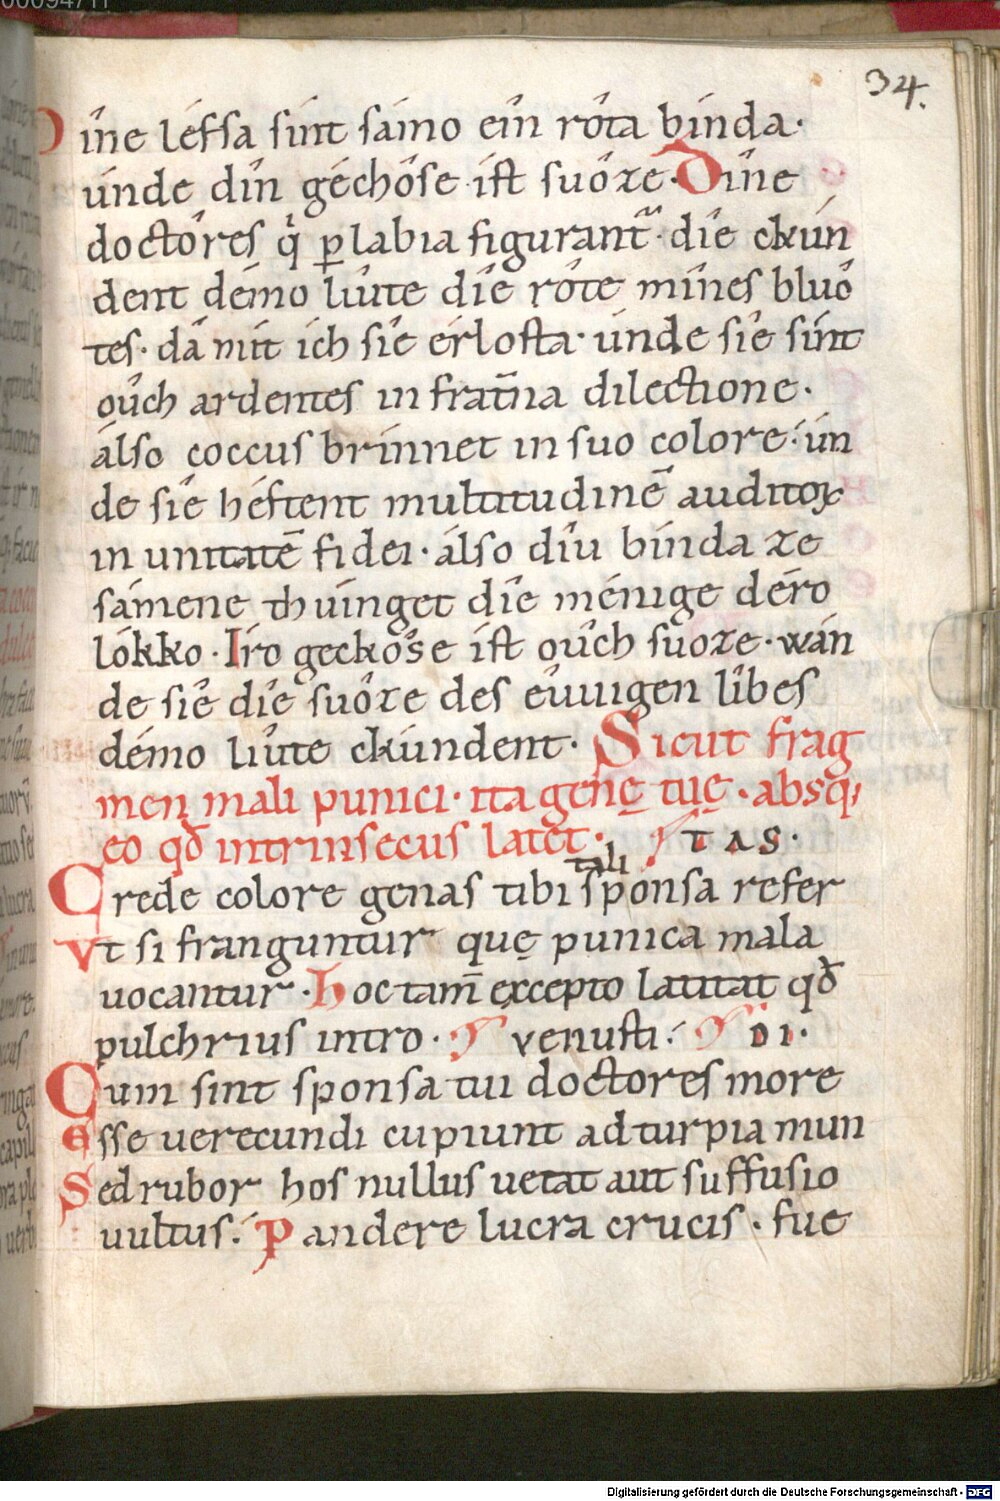 34.
Díne léfsa sínt sámo eîn rôta bínda·
únde dîn gechôse íst suôze· Dîne
doctôres q̇ ꝑ labia figurant᷒· die ckún
dent démo liûte die rôte mînes bluô
tes· dâ mit ich siê erlôsta· únde siê sínt
oûch ardentes in frat̄na dilectione·
álso coccus brínnet in suo colore· ún
de siê héftent multitudinē auditoꝝ
in unitatē fidei· álso diû bínda ze
sámene thuínget die ménige déro
lókko· Íro geckôse íst oûch suôze· wán
de siê die suôze des êuuigen lîbes
démo liûte ckúndent· Sicut frag
men mali punici· ita genę tuę· absq;
eo qđ intrinsecus latet· TAS·
tali
Crede colore genas tibi sponsa refer
Vt si franguntur quę punica mala
uocantur· Hoc tam̄ excepto latitat qđ
pulchrius intro· venusti· DI·
Cum sint sponsa tui doctores more
Esse uerecundi cupiunt ad turpia mun
Sed rubor hos nullus uetat aut suffusio
uultus· Pandere lucra crucis· fue
Digitalisierung gefördert durch die Deutsche Forschungsgemeinschaft - DFG